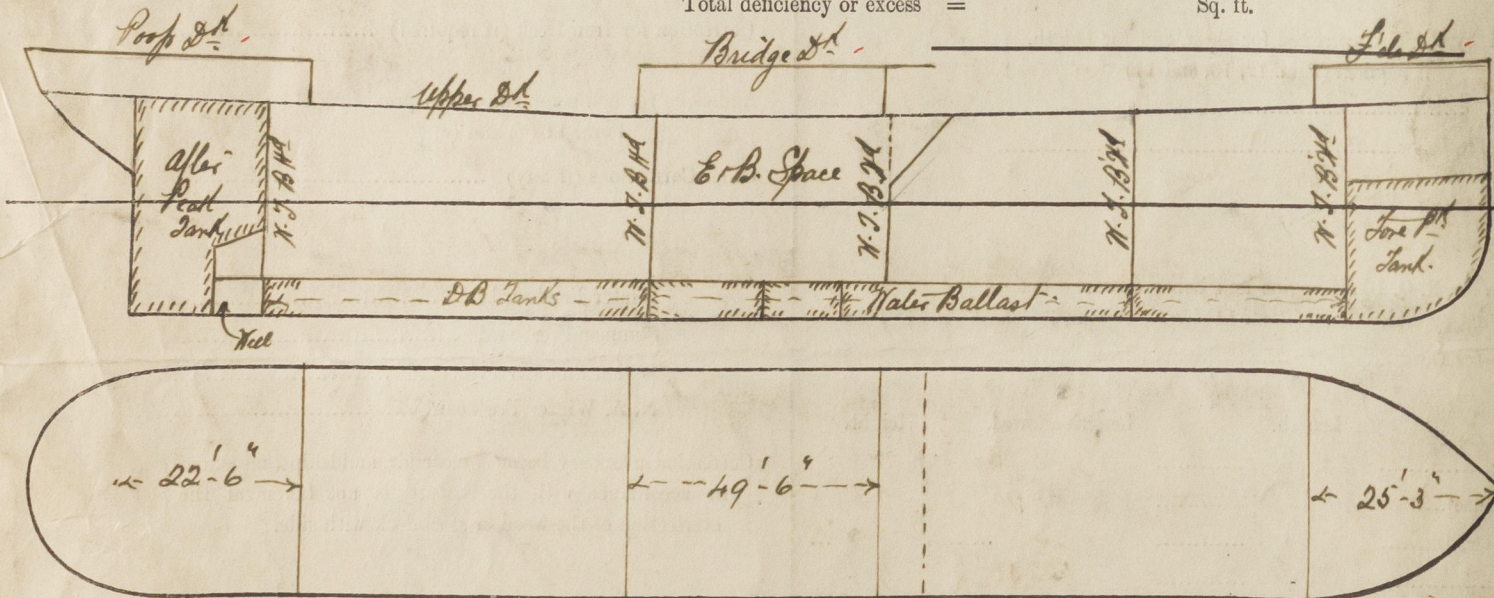 Total deficiency or excess = Sq. ft.
Poop Dk
Bridge Dk
F'cle Dk
Upper Dk
After
Peak
Tank
W.T.B'Hd
W.T.B'Hd
E & B. Space
W.T.B'Hd
W.T.B'Hd
W.T.B'Hd
Fore Pk
Tank.
DB Tanks
Water Ballast
Well
22'-6"
49'-6"
25'-3"